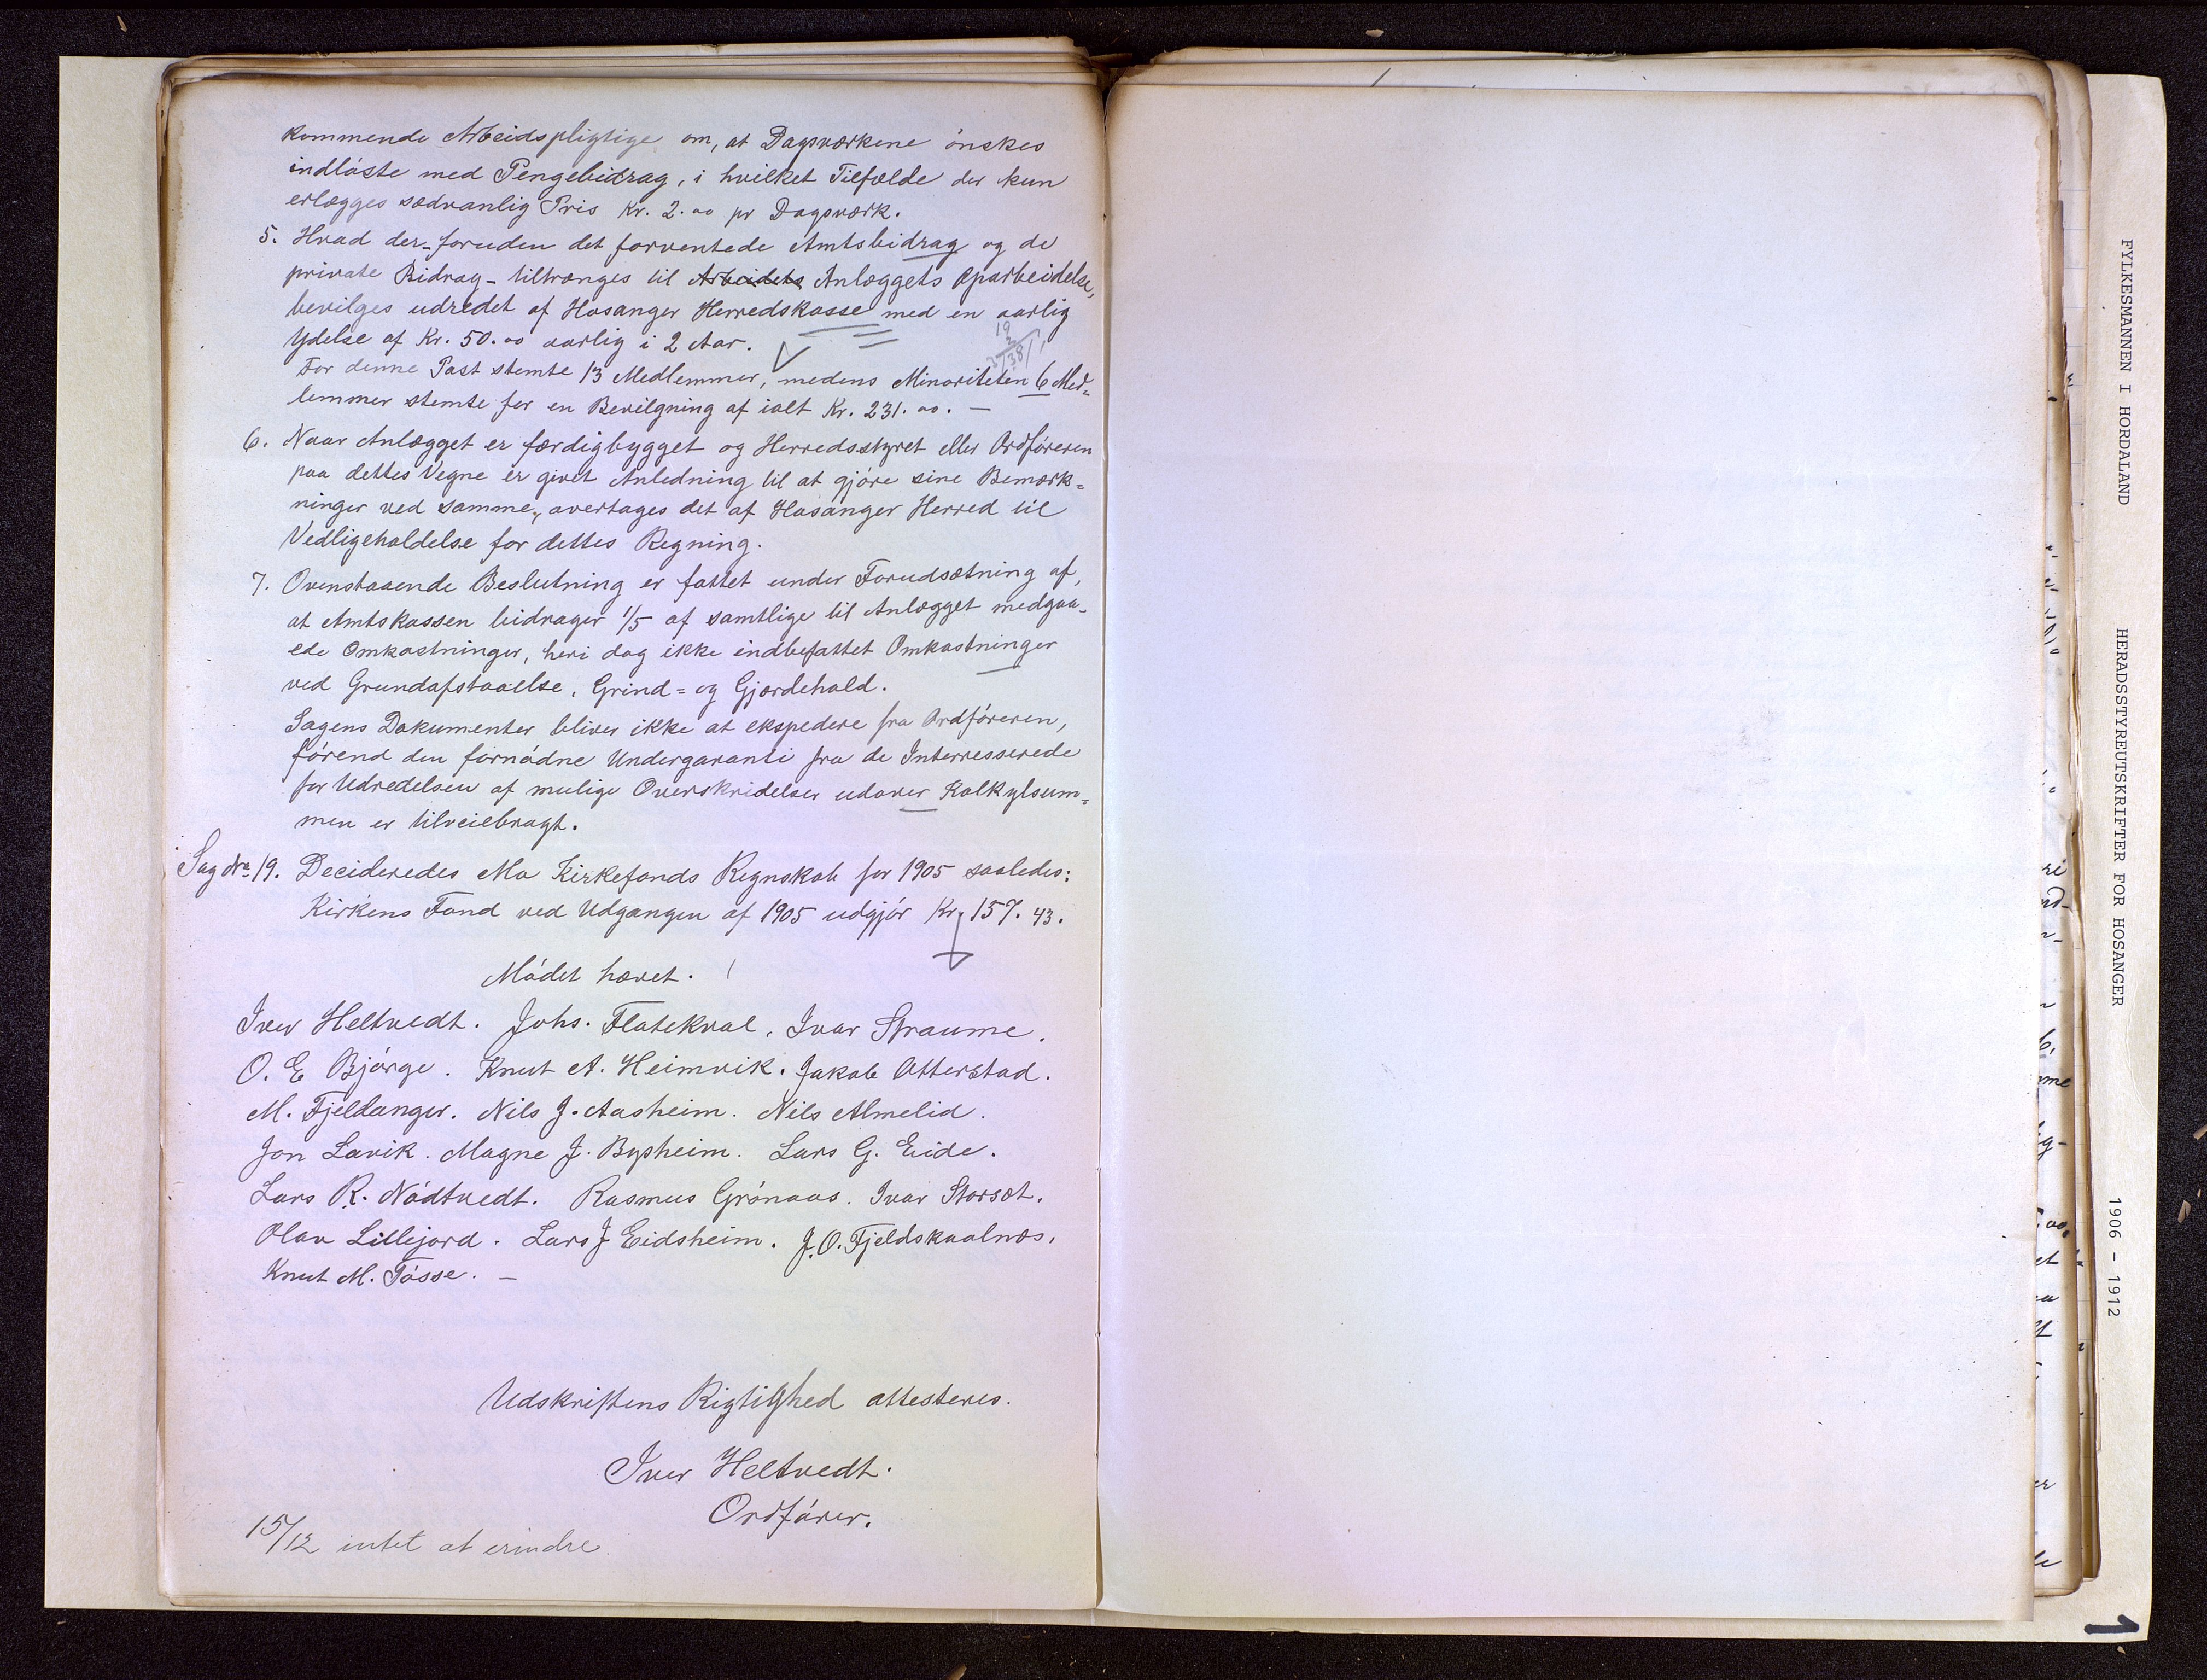 kommende Arbeidspligtige om, at Dagsværkene ønskes
indløste med Pengebidrag, i hvilket Tilfælde der kun
erlægges sædvanlig Pris Kr. 2.00 pr Dagsværk.
5. Hvad der - foruden det forventede Amtsbidrag og de
private Bidrag - tiltrænges til Arbeidets Anlæggets Oparbeidelse,
bevilges udredet af Hosanger Herredskasse med en aarlig
Ydelse af Kr. 50.00 aarlig i 2 Aar.
For denne Post stemte 13 Medlemmer, medens Minoriteten 6 Med=
lemmer stemte for en Bevilgning af ialt Kr. 231.00. —
6. Naar Anlægget er færdigbygget og Herredsstyret eller Ordføreren
paa dettes Vegne er givet Anledning til at gjøre sine Bemærk=
ninger ved samme, overtages det af Hosanger Herred til
Vedligeholdelse for dettes Regning.
7. Ovenstaaende Beslutning er fattet under Forudsætning af,
at Amtskassen bidrager 1/5 af samtlige til Anlægget medgaa-
ede Omkostninger, heri dog ikke indbefattet Omkostninger
ved Grundafstaaelse, Grind= og Gjærdehold.
Sagens Dokumenter bliver ikke at ekspedere fra Ordføreren,
førend den fornødne Undergaranti fra de Interresserede
for Udredelsen af mulige Overskridelser udover Kalkylsum=
men er tilveiebragt.
Sag No 19. Decideredes Mo Kirkefonds Regnskab for 1905 saaledes:
Kirkens Fond ved Udgangen af 1905 udgjør Kr. 157.43.
Mødet hævet.
Iver Heltvedt. Johs. Flatekval. Ivar Straume.
O. E Bjørge. Knut A. Heimvik. Jakob Otterstad.
M. Fjeldanger. Nils J. Aasheim. Nils Almelid.
Jon Lavik. Magne J. Bysheim. Lars G. Eide.
Lars R. Nødtvedt. Rasmus Grønaas. Ivar Storsæt.
Olav Lillejord. Lars J Eidsheim. J. O. Fjeldskaalnæs.
Knut M. Tøsse. —
Udskriftens Rigtighed attesteres.
Iver Heltvedt.
Ordfører.
15/12 intet at erindre
FYLKESMANNEN I HORDALAND
HERADSSTYREUTSKRIFTER FOR HOSANGER
1906 - 1912
1